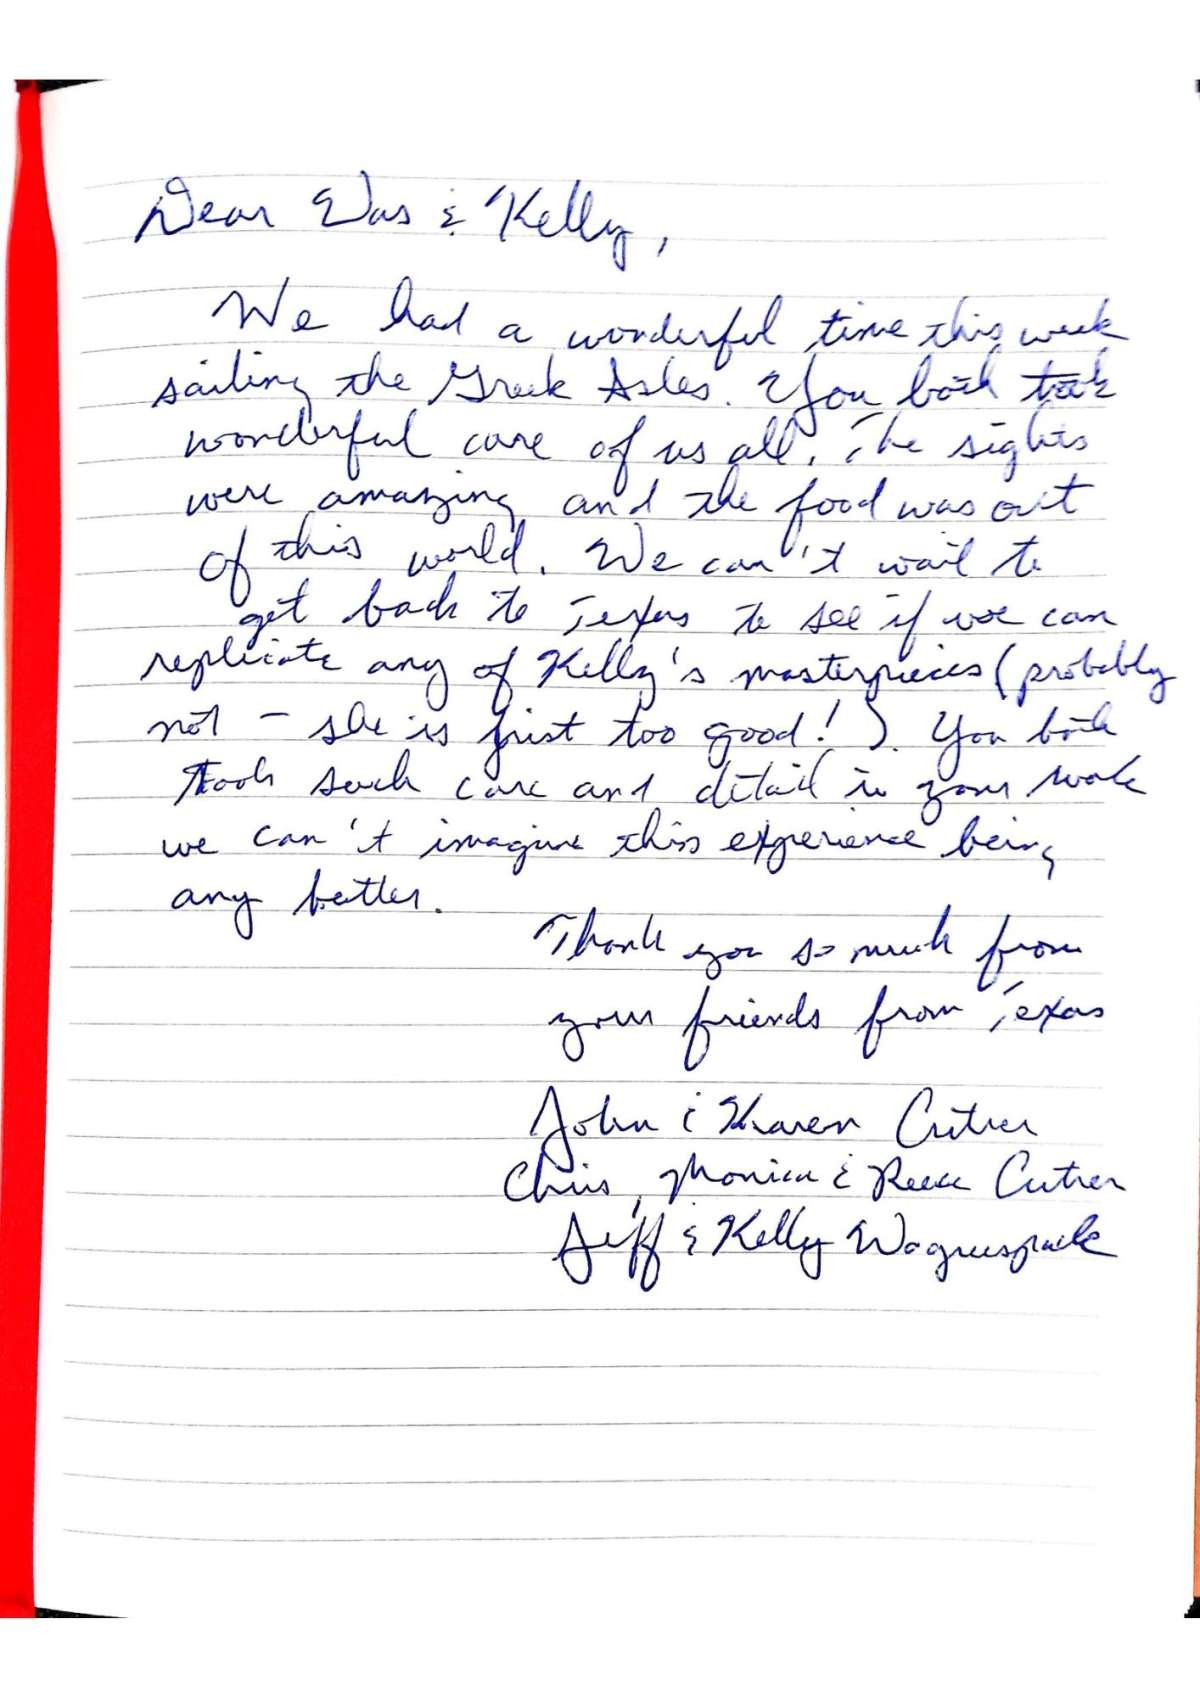 Dear Was & Kelly,
We had a wonderful time this week
sailing the Greek Isles. You both took
wonderful care of us all. The sights
were amazing and the food was out
of this world. We can't wait to
get back to Texas to see if we can
replicate any of Kelly's masterpieces (probably
not - she is just too good!). You both
took such care and detail in your work
we can't imagine this experience being
any better.
Thank you so much from
your friends from Texas
John & Karen Cutrer
Chris, Monica & Reece Cutrer
Jeff & Kelly Waguespack